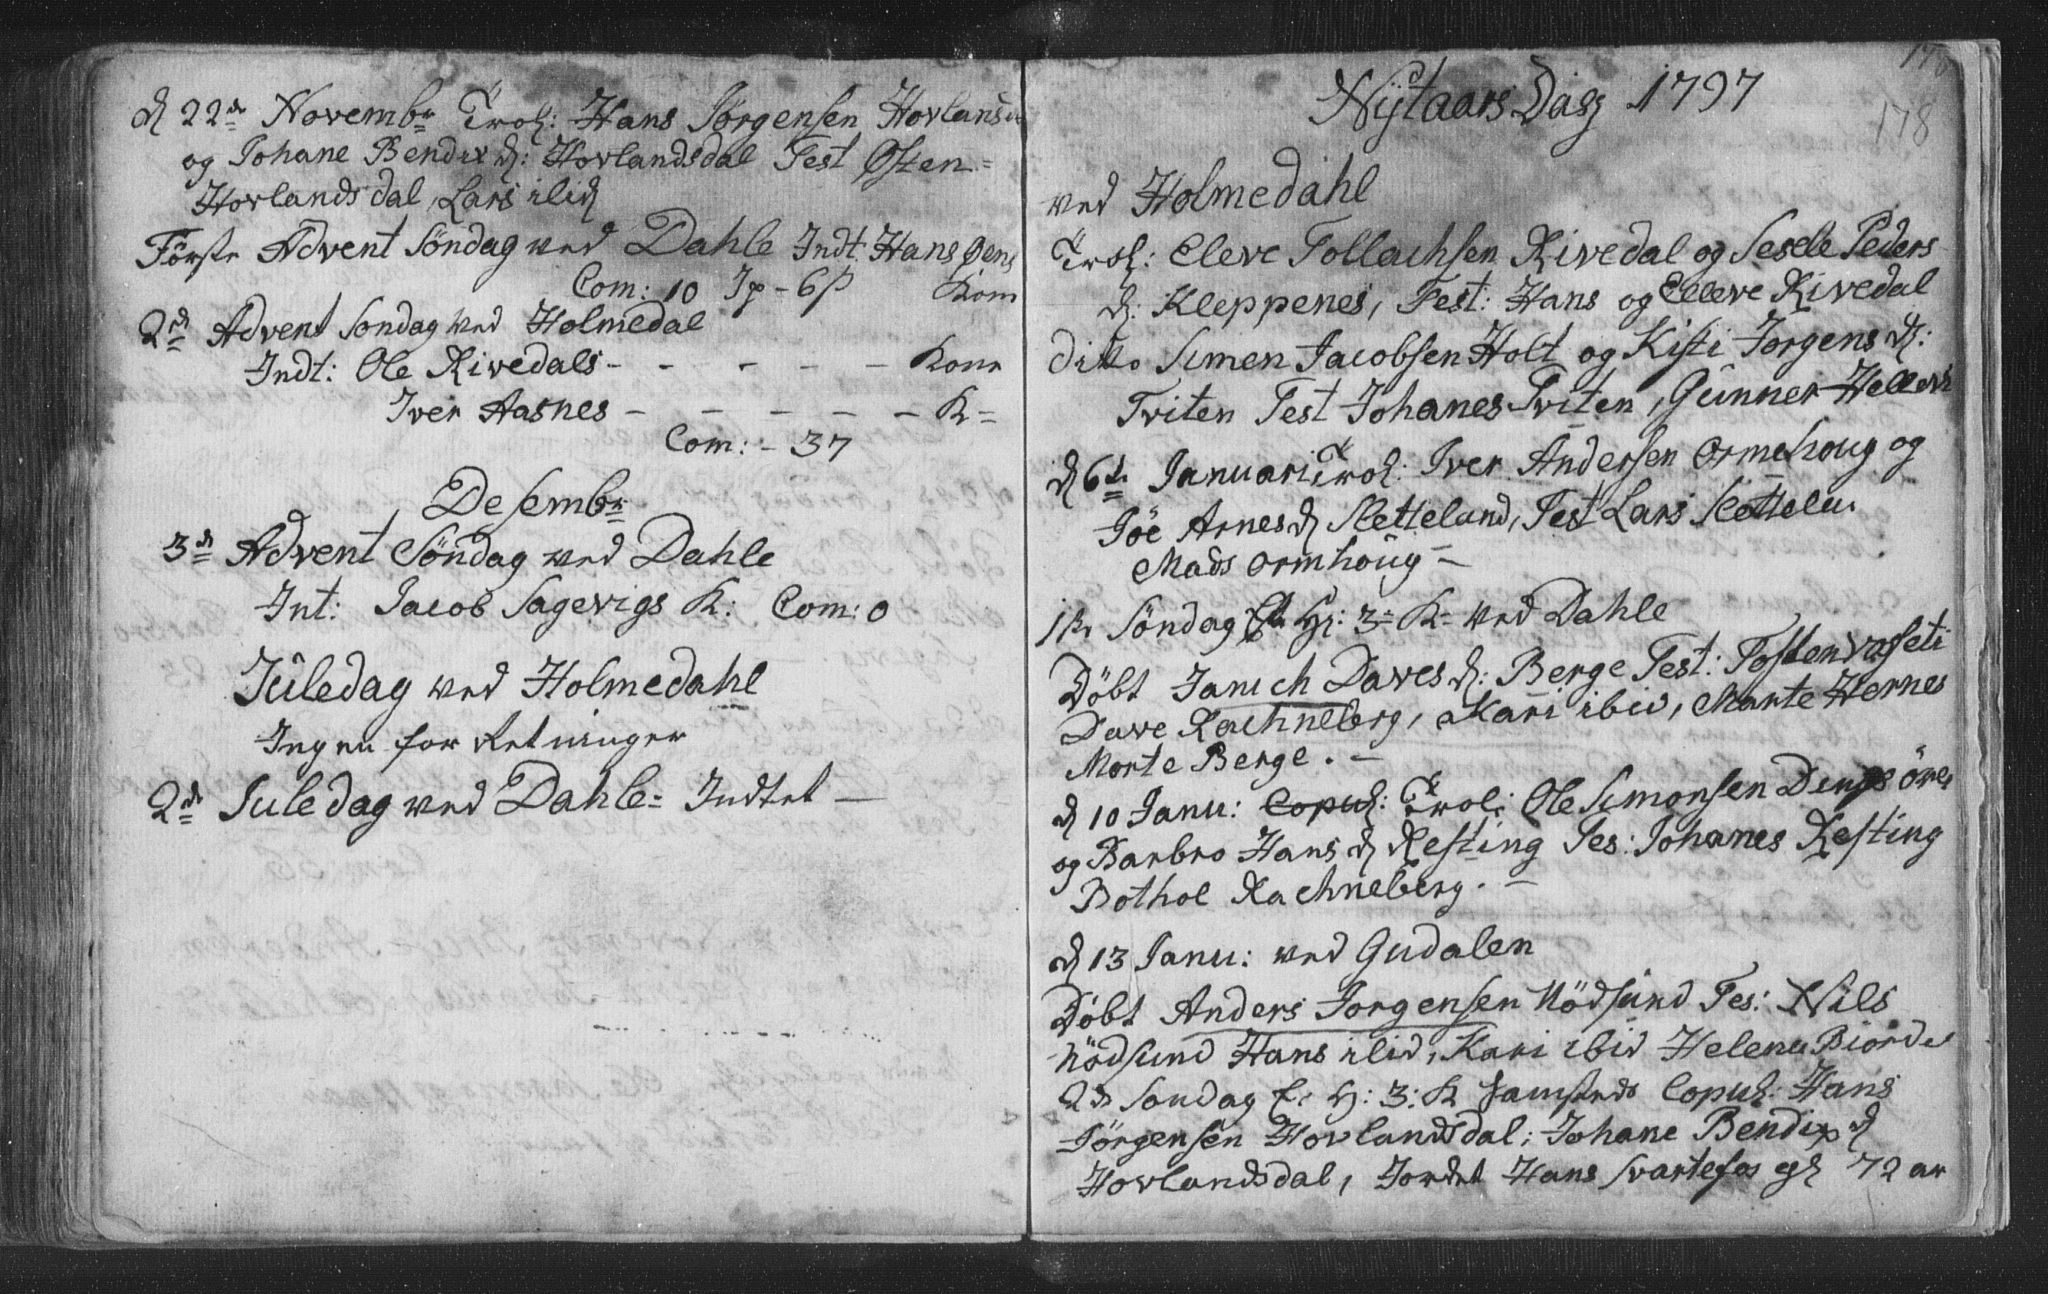 d 22de Novembr Trol: Hans Jørgensen Hovlansd
og Johane Bendix d: Hovlandsdal Test Østen=
Hovlandsdal, Lars ibid
Første Advent Søndag ved Dahle Indt Hans Øens
Com: 10 Ip - 6 β Kom
2d Advent Søndag ved Holmedal
Indt: Ole Rivedals - - - - - Kone
Iver Aasnes - - - - - K=
Com: - 37
Desembr
3de Advent Søndag ved Dahle
Int: Jacob Sagevigs K: Com: 0
Juledag ved Holmedahl
Ingen forretninger
2de Juledag ved Dahle= Indtet —
178
Nytaars Dag 1797
ved Holmedahl
Trol: Eleve Tollachsen Rivedal og Sesele Peders
d: Kleppenes, Test: Hans og Elleve Rivedal
ditto Simen Jacobsen Holt og Kisti Jørgens d:
Tviten Test Johanes Tviten, Gunner Hellevi
d 6te Januari Trol: Iver Andersen Ormehoug og
Jøe Arnes d Sletteland, Test Lars Slettela.
Mads Ormhoug —
1te Søndag Eft H: 3= K= ved Dahle
Døbt Janich Daves d: Berge Test: Tosten
Dave Rachneberg, Kari ibid, Marte Hernes
Morte Berge . —
d 10 Janu: Copul: Trol: Ole Simonsen
og Barbro Hans d Resting Tes: Johanes Resting
Bothol Rachneberg. —
d 13 Janu: ved Gudalen
Døbt Anders Jorgensen Nødsund Tes: Nils
Nødsund Hans ibid, Kari ibid Helena Biorde
2d Søndag E: H: 3: K samsteds Copul: Hans
Jørgensen Hovlandsdal; Johane Bendix d
Hovlandsdal, Jordet Hans Svartefos 72 ar